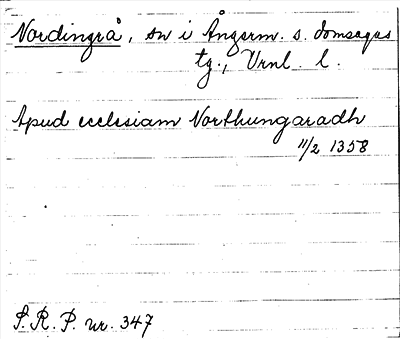 Nordingrå, sn i Ångerm. s. domsagas
tg., Vrnl. l.
Apud ecclesiam Northungaradh
11/2 1358
S. R. P. nr. 347